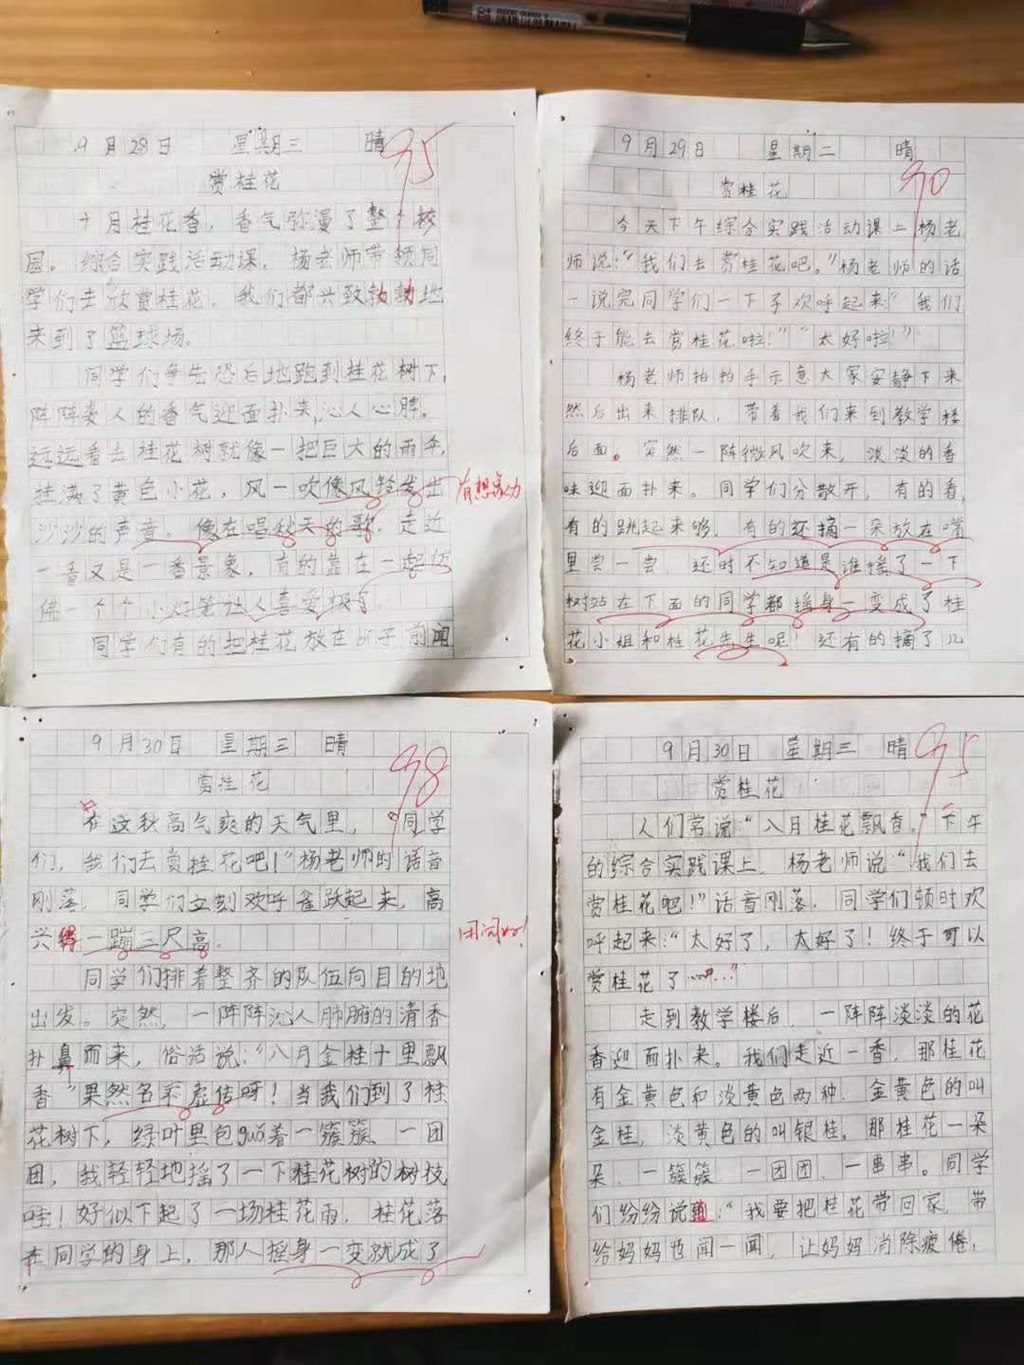 9月28日 星期三 晴
95
赏桂花
十月桂花香，香气弥漫了整个校
园。综合实践活动课，杨老师带领同
学们去欣赏桂花。我们都兴致勃勃地
来到了篮球场。
同学们争先恐后地跑到桂花树下，
阵阵袭人的香气迎面扑来，沁人心脾。
远远看去桂花树就像一把巨大的雨伞，
挂满了黄色小花，风一吹像风铃发出
有想象力
沙沙的声音。像在唱秋天的歌。走近
一看又是一番景象，有的靠在一起仿
佛一个个小灯笼让人喜爱极了。
同学们有的把桂花放在 子前闻
9月29日 星期二 晴
90
赏桂花
今天下午综合实践活动课上杨老
师说：“我们去赏桂花吧。”杨老师的话
一说完同学们一下子欢呼起来“我们
终于能去赏桂花啦！”“太好啦！”
杨老师拍拍手示意大家安静下来
然后出来排队，带着我们来到教学楼
后面。突然一阵微风吹来，淡淡的香
味迎面扑来。同学们分散开，有的看，
有的跳起来够，有的还摘一朵放在嘴
里尝一尝，还时不知道是谁摇了一下
树站在下面的同学都摇身一变成了桂
花小姐和桂花先生呢！还有的摘了几
9月30日 星期三 晴
98
赏桂花
在这秋高气爽的天气里，“同学
们，我们去赏桂花吧！”杨老师的话音
刚落，同学们立刻欢呼雀跃起来，高
兴得一蹦三尺高。
用词好！
同学们排着整齐的队伍向目的地
出发。突然，一阵阵沁人肺腑的清香
扑鼻而来，俗话说：“八月金桂十里飘
香”果然名不虚传呀！当我们到了桂
花树下，绿叶里包guǒ着一簇簇、一团
团，我轻轻地摇了一下桂花树的树枝
哇！好似下起了一场桂花雨，桂花落
在同学的身上，那人摇身一变就成了
9月30日 星期三 晴
95
赏桂花
人们常说“八月桂花飘香。”下午
的综合实践课上，杨老师说：“我们去
赏桂花吧！”话音刚落，同学们顿时欢
呼起来：“太好了，太好了！终于可以
赏桂花了……！”
走到教学楼后，一阵阵淡淡的花
香迎面扑来。我们走近一看，那桂花
有金黄色和淡黄色两种，金黄色的叫
金桂，淡黄色的叫银桂。那桂花一朵
朵、一簇簇、一团团、一串串。同学
们纷纷说道：“我要把桂花带回家，带
给妈妈也闻一闻，让妈妈消除疲倦，